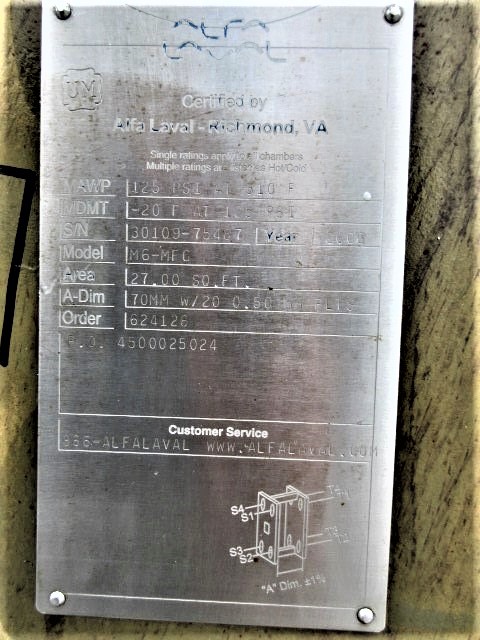 ALFA
LAVAL
UM
Certified by
Alfa Laval - Richmond, VA
Single ratings apply all chambers
Multiple ratings as Hot/Cold
MAWP 125 PSI AT 310 F
MDMT -20 F AT 125 PSI
S/N 30109- Year
Model M6-MFG
Area 27.00 SQ.FT.
A-Dim 70MM W/20 0.50
Order 624126
P.O. 4500025024
Customer Service
866-ALFALAVAL WWW.ALFALAVAL.COM
S4
S1
S3
S2
"A" Dim. ±1%